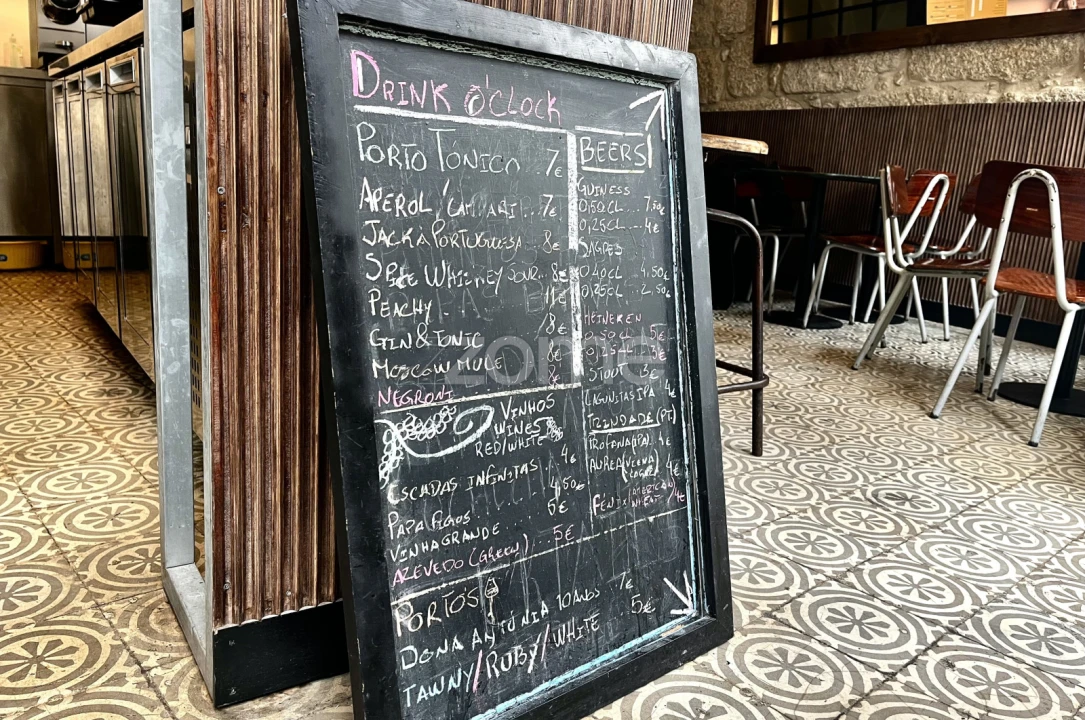 DRINK O'CLOCK
PORTO TÓNICO 7€
APEROL/CAMPARI... 7€
JACK À PORTUGUESA.. 8€
SPICE WHISKEY SOUR... 8€
PEACHY 11€
GIN & TONIC 8€
MOSCOW MULE 8€
NEGRONI 8€
VINHOS
WINES
RED/WHITE
ESCADAS INFINITAS... 4€
PAPA FIGOS.... 4,50€
VINHA GRANDE 6€
AZEVEDO (GREEN)... 5€
PORTO'S
DONA ANTÓNIA 10 ANOS 7€
TAWNY/RUBY/WHITE 5€
BEERS
GUINESS
0,50CL... 7,50€
0,25CL... 4€
SAGRES
0,40CL... 4,50€
0,25CL... 2,50€
HEINEKEN
0,50CL 5€
0,25CL 3€
STOUT 3€
LAGUNITAS IPA 4€
TRINDADE (PT)
PROFANA (IPA) 4€
AUREA (VIENA LAGER) 4€
FÉNIX (AMERICAN WHEAT) 4€
zome